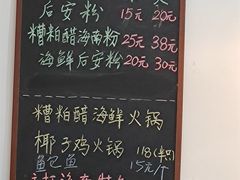 后安粉 15元 20元
糟粕醋海南粉 25元 38元
海鲜后安粉 20元 30元
糟粕醋海鲜火锅
椰子鸡火锅 118(半只)
鱼 15元/个